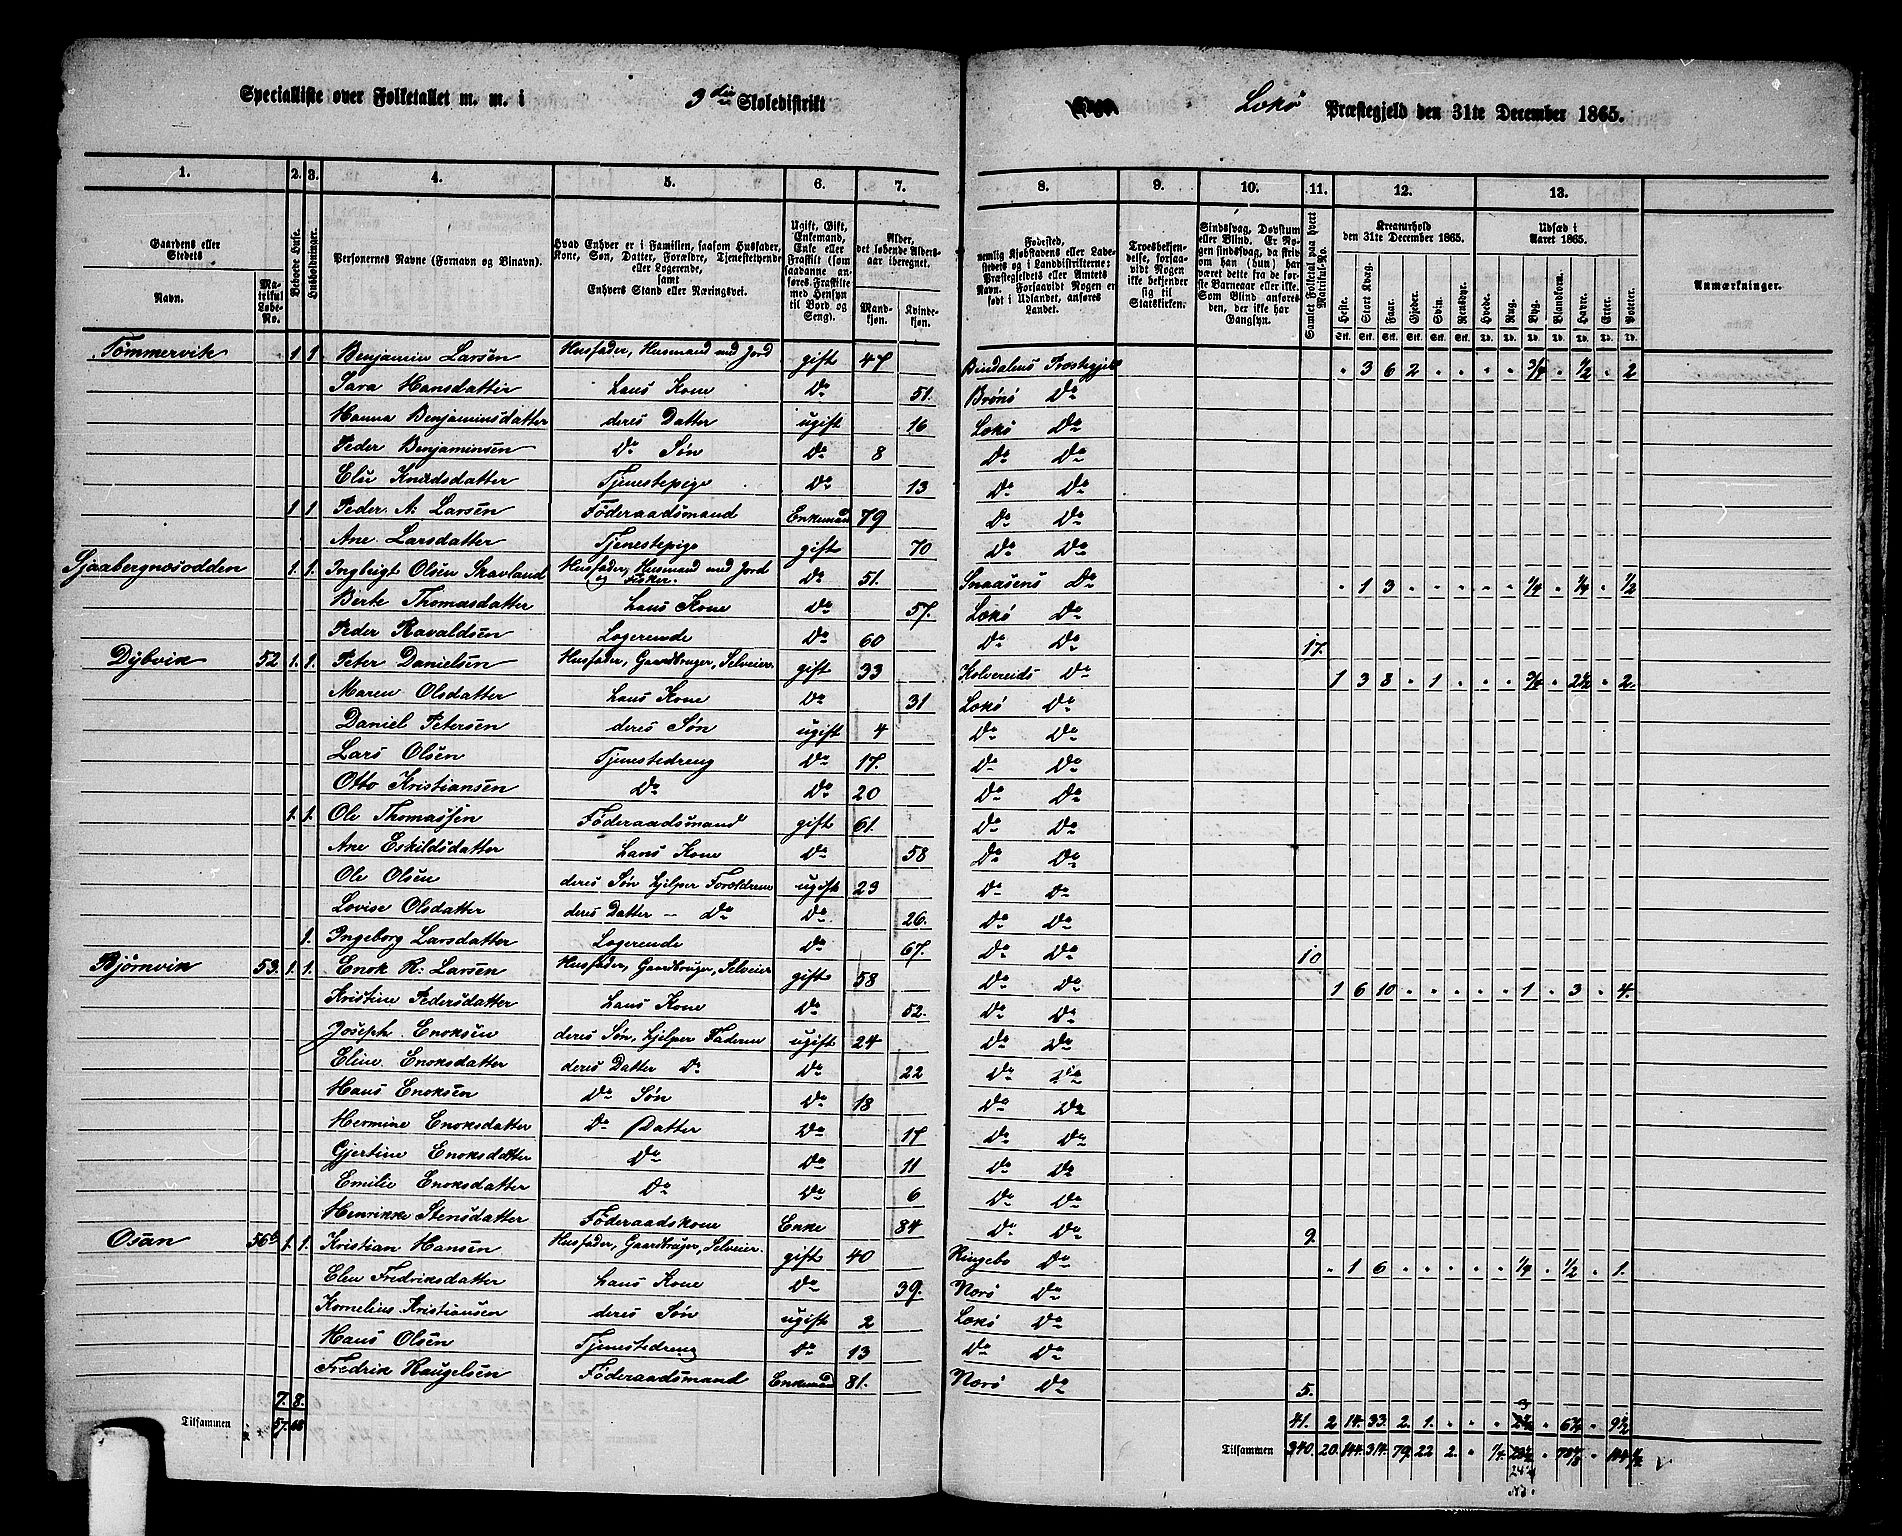 Specialliste over Folketallet m. m. i 3die Skoledistrikt Lekø Præstegjeld den 31te December 1865.
1. 2. 3. 4. 5. 6. 7. 8. 9. 10. 11. 12. 13.
Gaardens eller Stedets Navn. Matrikul Løbe-No. Beboede Huse. Husholdninger.
Personernes Navne (Fornavn og Binavn).
Hvad Enhver er i Familien, saasom Husfader, Kone, Søn, Datter, Forældre, Tjenestetyende eller Logerende, samt Enhvers Stand eller Næringsvei.
Ugift, Gift, Enkemand, Enke eller Fraskilt (som saadanne anføres Fraskilte med Hensyn til Bord og Seng).
Alder, det løbende Aldersaar iberegnet. Mandkjøn. Kvindekjøn.
Fødested, nemlig Kjøbstadens eller Ladestedets og i Landdistrikterne: Præstegjeldets eller Amtets Navn. Forsaavidt Nogen er født i Udlandet, anføres Landet.
Troesbekjendelse, forsaavidt Nogen ikke bekjender sig til Statskirken.
Sindssvag, Døvstum eller Blind. Er Nogen sindssvag, da skriv om han (hun) har været dette fra de første Barneaar eller ikke. Som Blind anføres den, der ikke har Gangsyn.
Samlet Folketal paa hvert Matrikul-No.
Kreaturhold den 31te December 1865. Heste. Stort Kvæg. Faar. Gjeder. Svin. Rensdyr.
Udsæd i Aaret 1865. Hvede. Rug. Byg. Blandkorn. Havre. Erter. Poteter.
Anmærkninger.
Tømmervik 1 1 Benjamin Larsen Husfader, Husmand med Jord gift 47 Bindalens Præstegjeld 3 6 2 3/4 1/2 2
Sara Hansdatter hans Kone Do 51. Brønø Do
Hanna Benjaminsdatter deres Datter ugift 16 Lekø Do
Peder Benjaminsen Do Søn Do 8 Do Do
Elen Knudsdatter Tjenestepige Do 13 Do Do
1 1. Peder A: Larsen Føderaadsmand Enkemand 79 Do Do
Ane Larsdatter Tjenestepige gift 70 Do Do
Sjaabergnæsodden 1. 1. Ingbrigt Olsen Skavland Husfader, Husmand med Jord og Fisker. Do 51. Snaasens Do 1 3 1/4 1/4 1/2
Berte Thomasdatter hans Kone Do 57. Lekø Do
Peder Ravaldsen Logerende Do 60 Do Do 17.
Dybvik 52 1. 1. Peter Danielsen Husfader, Gaardbruger, Selveier. gift 33 Kolvereids Do 1 3 8 1 3/4 2 1/2 2.
Maren Olsdatter hans Kone Do 31 Lekø Do
Daniel Petersen deres Søn ugift 4 Do Do
Lars Olsen Tjenestedreng Do 17. Do Do
Otto Kristiansen Do Do 20 Do Do
1. 1. Ole Thomassen Føderaadsmand gift 61. Do Do
Ane Eskildsdatter hans Kone Do 58 Do Do
Ole Olsen deres Søn hjelper Forældrene ugift 23 Do Do
Lovise Olsdatter deres Datter – Do Do 26. Do Do
1. Ingeborg Larsdatter Logerende Do 67. Do Do 10
Bjørnvik 53. 1. 1. Enok R: Larsen Husfader, Gaardbruger, Selveier gift 58 Do Do 1 6 10 1 3 4.
Kristine Pedersdatter hans Kone Do 52. Do Do
Joseph Enoksen deres Søn, hjelper Faderen ugift 24 Do Do
Eline Enoksdatter deres Datter Do Do 22 Do Do
Hans Enoksen Do Søn Do 18 Do Do
Hermine Enoksdatter Do Datter Do 17 Do Do
Gjertine Enoksdatter Do Do 11 Do Do
Emilie Enoksdatter Do Do 6 Do Do
Henrikke Stensdatter Føderaadskone Enke 84 Do Do 9.
Osan 56b 1. 1. Kristian Hansen Husfader, Gaardbruger, Selveier. gift 40 Ringebo Do 1 6 1/4 1/2 1.
Elen Fredriksdatter hans Kone Do 39. Nærø Do
Kornelius Kristiansen deres Søn ugift 2 Lekø Do
Hans Olsen Tjenestedreng Do 13 Do Do
Fredrik Haugelsen Føderaadsmand Enkemand 81. Nærø Do 5.
7. 8. 41. 2 14. 33. 2. 1. 6 3/4 9 1/2
Tilsammen 57. 68 Tilsammen 340. 20. 144. 314. 79. 22 2.